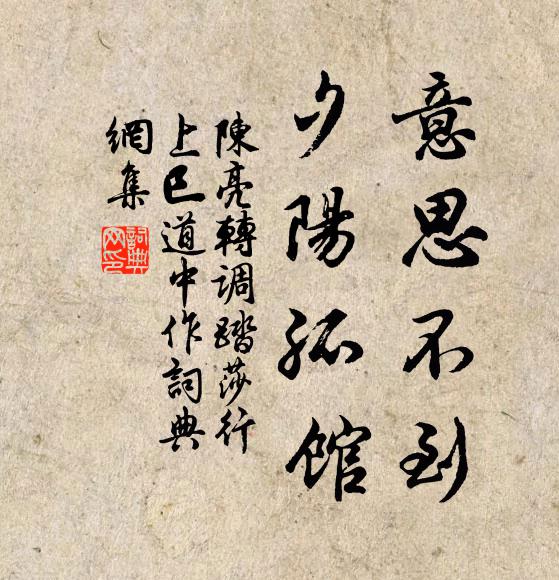 意思不到
夕陽孤館
陳亮轉調踏莎行
上巳道中作詞典
網集
詞典
网印